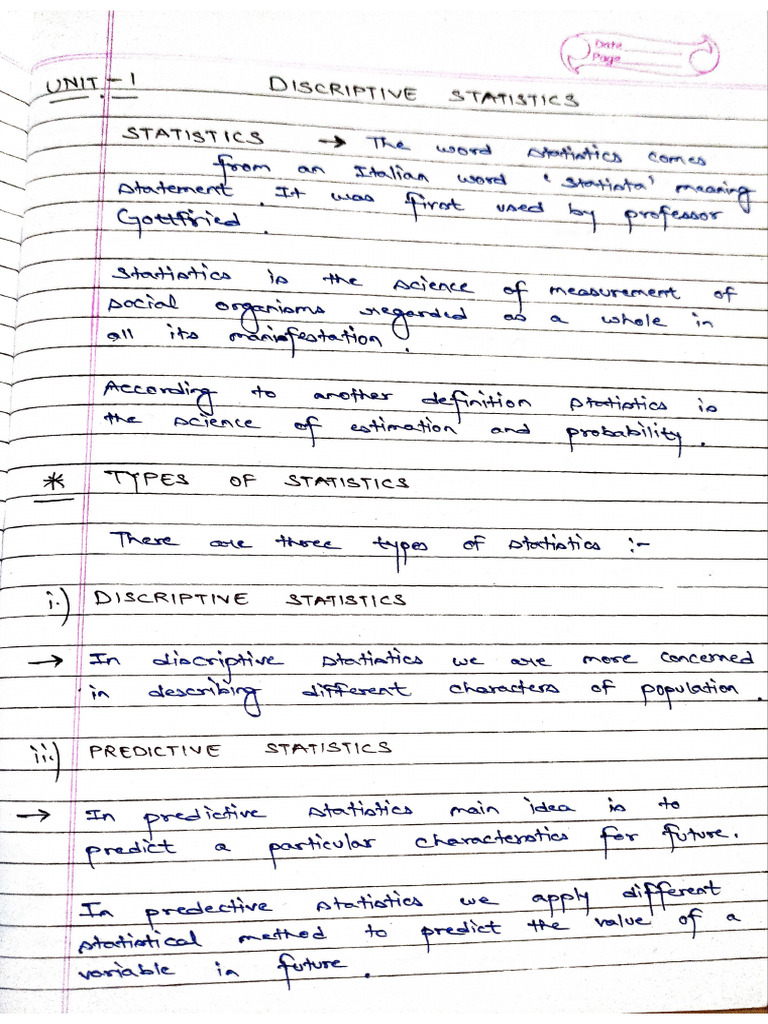 Date
Page
UNIT - 1 DISCRIPTIVE STATISTICS
STATISTICS → The word statistics comes
from an Italian word 'statista' meaning
statement. It was first used by professor
Gottfried.
Statistics is the science of measurement of
social organisms regarded as a whole in
all its maninfestation.
According to another definition statistics is
the science of estimation and probability.
* TYPES OF STATISTICS
There are three types of statistics :-
i.) DISCRIPTIVE STATISTICS
→ In discriptive statistics we are more concerned
in describing different characters of population.
ii.) PREDICTIVE STATISTICS
→ In predictive statistics main idea is to
predict a particular characterstics for future.
In predective statistics we apply different
statistical method to predict the value of a
variable in future.